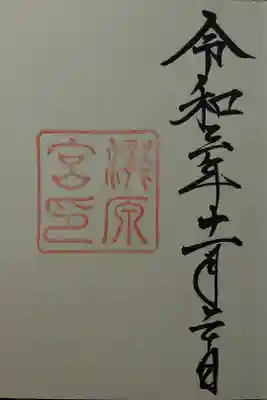 令和三年十一月六日
瀧原
宮印